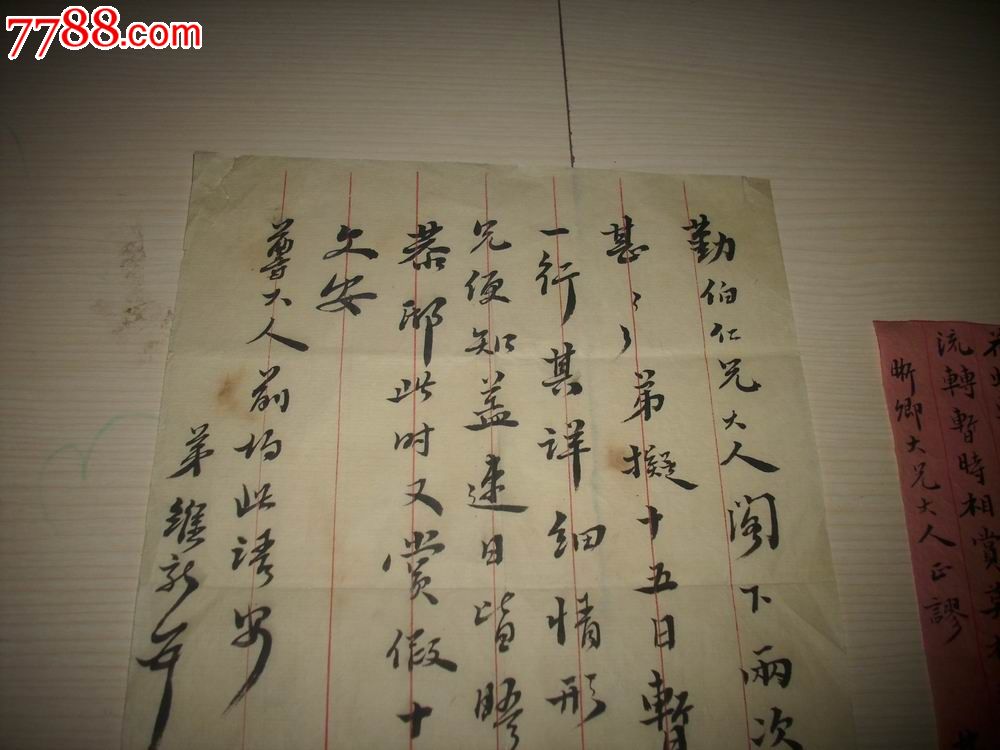 7788.com
勤伯仁兄大人閣下兩次
甚々々弟擬十五日暫
一行其詳細情形
兄便知蓋速日皆晤
恭邸此时又賞假十
文安
尊大人前均此請安
弟維新
流轉暫時相賞莫
晰卿大兄大人正謬